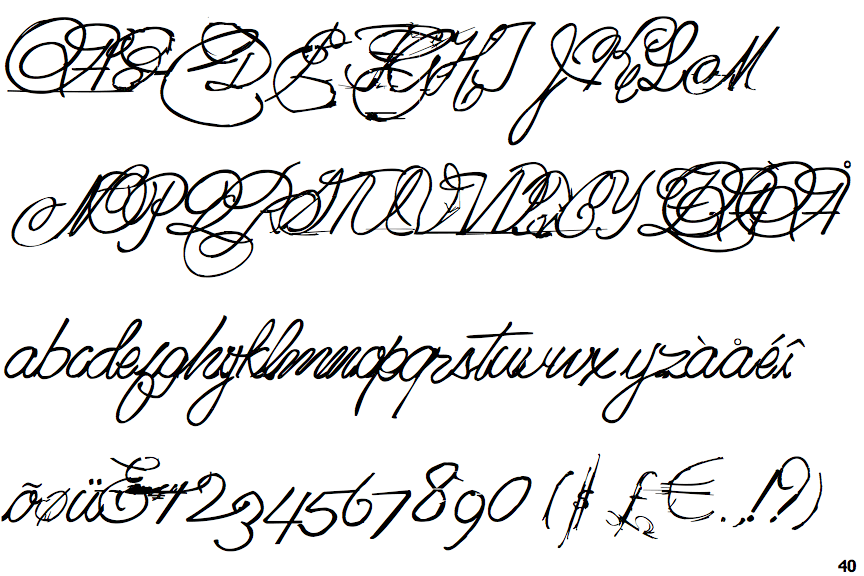 ABCDEFGHIJKLM
NOPQRSTUVWXYZÀÅ
abcdefghijklmnopqrstuvwxyzàåéî
õøü&1234567890($£€.,!?)
40